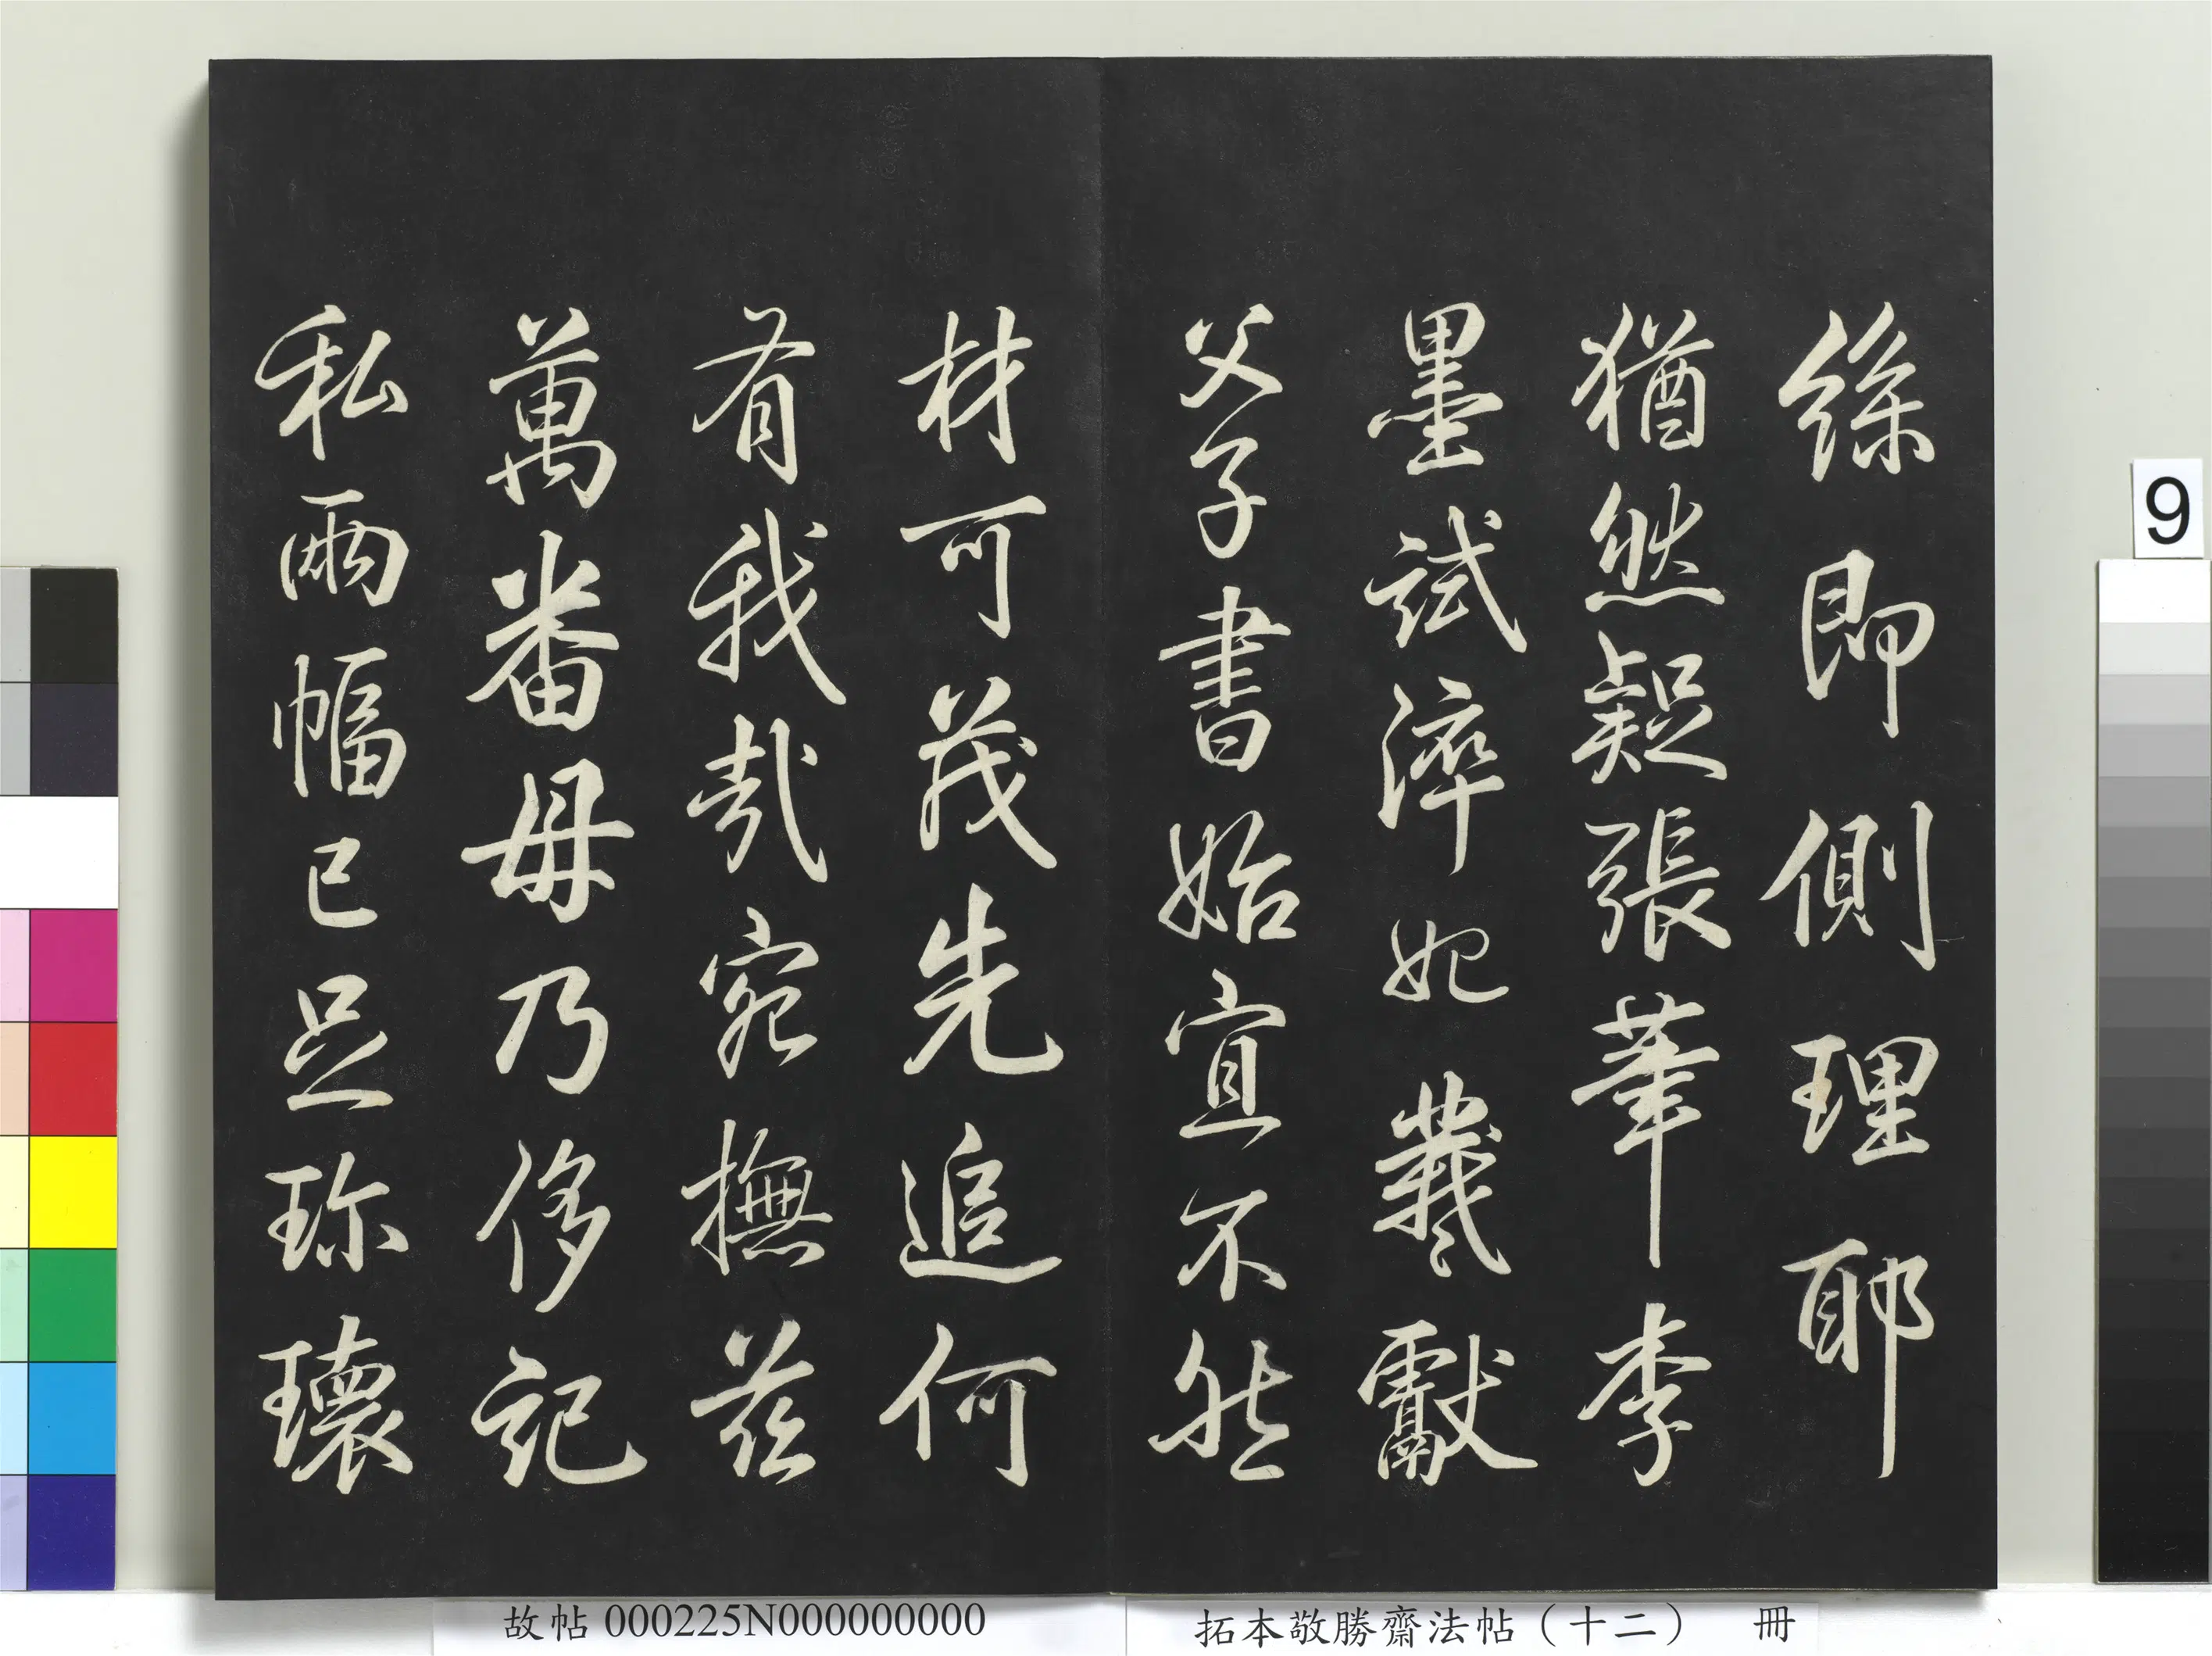 絲即側理耶
猶然疑張筆李
墨試淬妃羲獻
父子書始宜不然
材可茂先追何
有我哉宛撫茲
萬番毋乃侈記
私兩幅已足珎瓌
9
故帖 000225N000000000
拓本敬勝齋法帖（十二） 冊